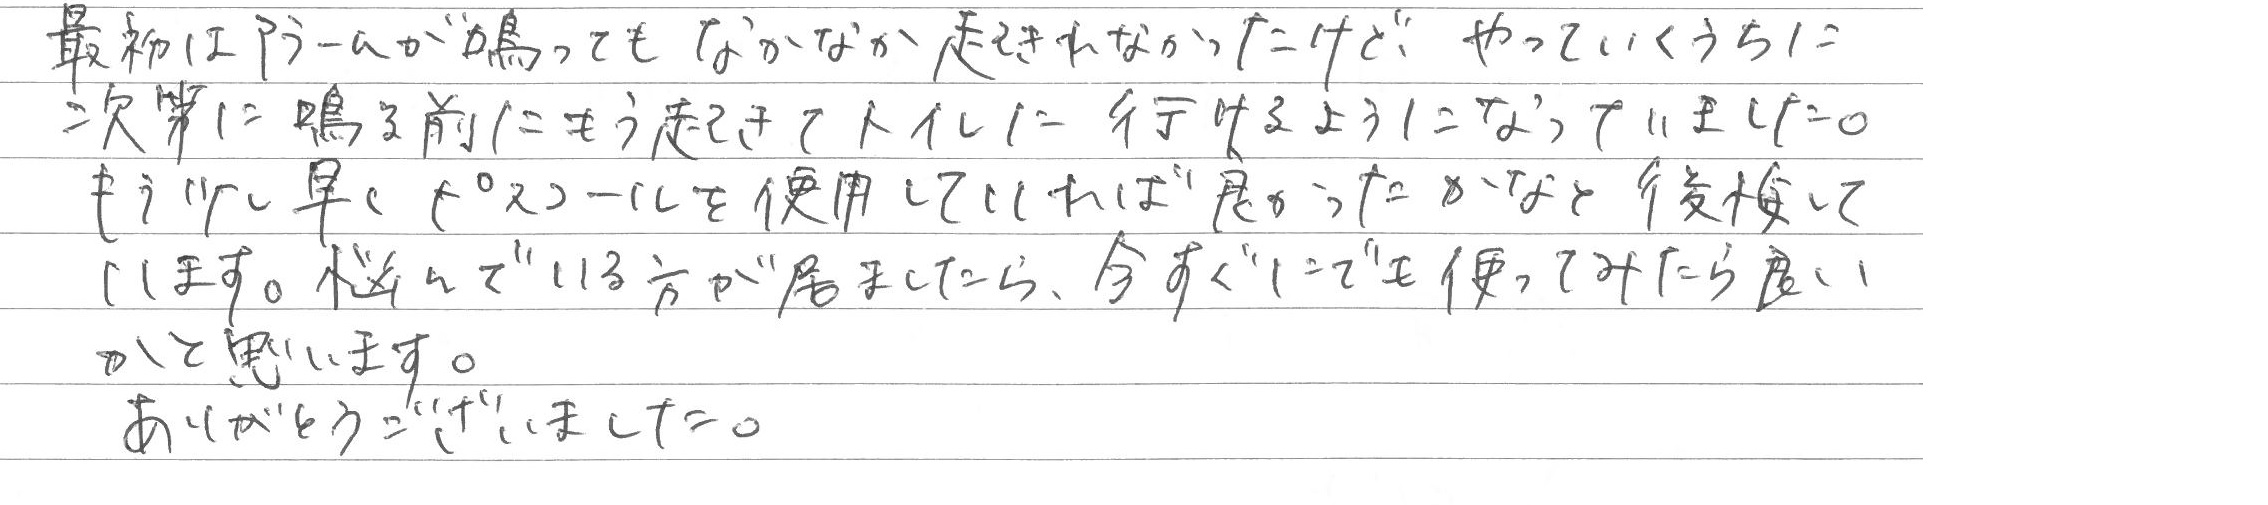 最初はアラームが鳴ってもなかなか起きれなかったけど、やっていくうちに
次第に鳴る前にもう起きてトイレに行けるようになっていました。
もう少し早くピスコールを使用していれば良かったかなと後悔して
います。悩んでいる方が居ましたら、今すぐにでも使ってみたら良い
かと思います。
ありがとうございました。